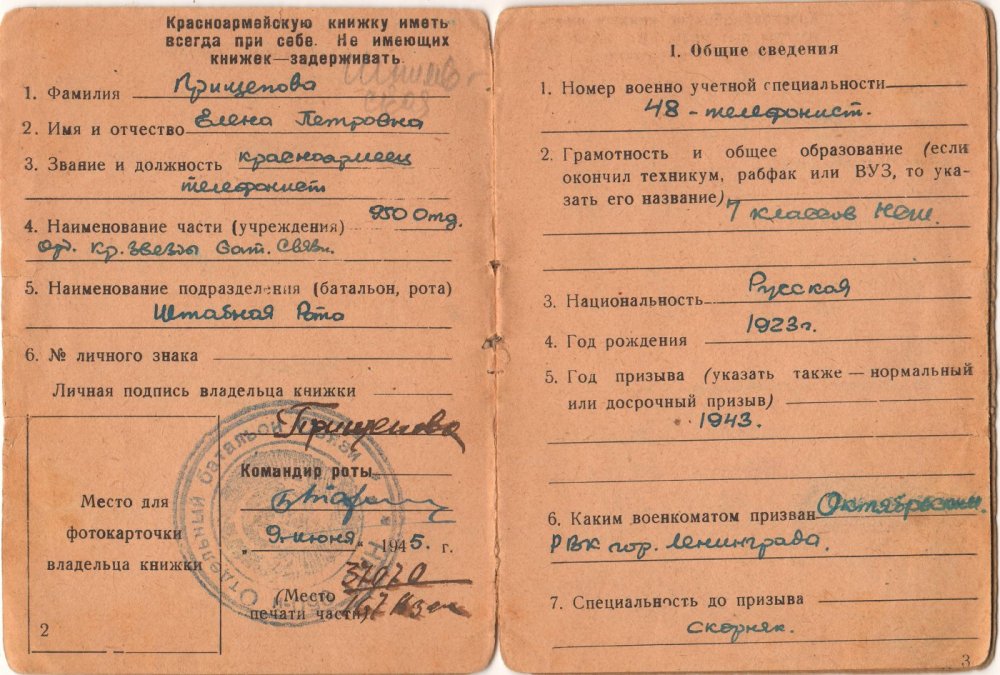 Красноармейскую книжку иметь
всегда при себе. Не имеющих
книжек—задерживать.
1. Фамилия Прищепова
2. Имя и отчество Елена Петровна
3. Звание и должность красноармеец
телефонист
4. Наименование части (учреждения) 950 Отд.
орд. Кр. Звезды бат. Связи.
5. Наименование подразделения (батальон, рота)
Штабная Рота
6. № личного знака
Личная подпись владельца книжки
Прищепова
Командир роты
„9 июня" 1945 г.
37070
(Место
печати части)
Отдельный батальон связи
Место для
фотокарточки
владельца книжки
2
I. Общие сведения
1. Номер военно учетной специальности
48 - телефонист.
2. Грамотность и общее образование (если
окончил техникум, рабфак или ВУЗ, то ука-
зать его название) 7 классов НСШ.
3. Национальность Русская
4. Год рождения 1923г.
5. Год призыва (указать также — нормальный
или досрочный призыв)
1943.
6. Каким военкоматом призван Октябрьским
РВК гор. Ленинграда.
7. Специальность до призыва
Скорняк.
3